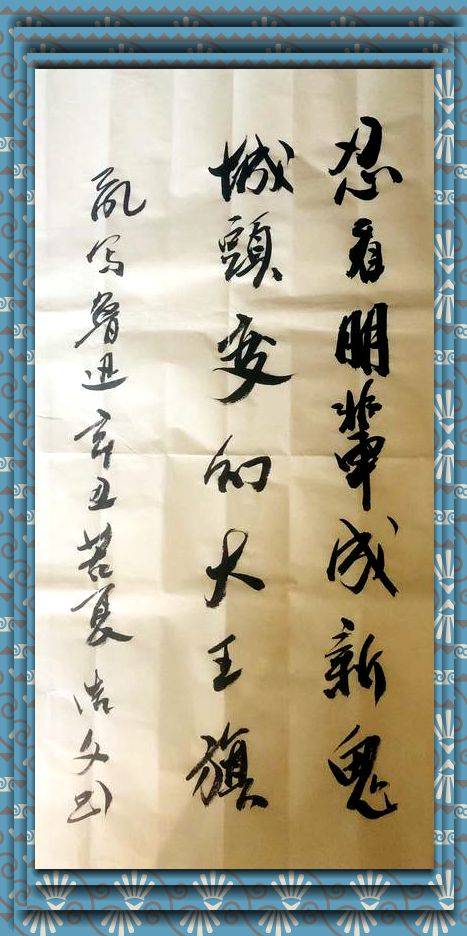 忍看朋輩成新鬼
城頭变的大王旗
亂写魯迅辛丑夏浩文书